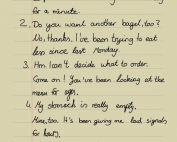 for a minute.
2. Do you want another bagel, too?
No, thanks. I've been trying to eat
less since last Monday.
3. Hm I can't decide what to order.
Come on! You've been looking at the
menu for ages.
4. My stomach is really empty.
Mine, too. It's been giving me loud signals
for hours.